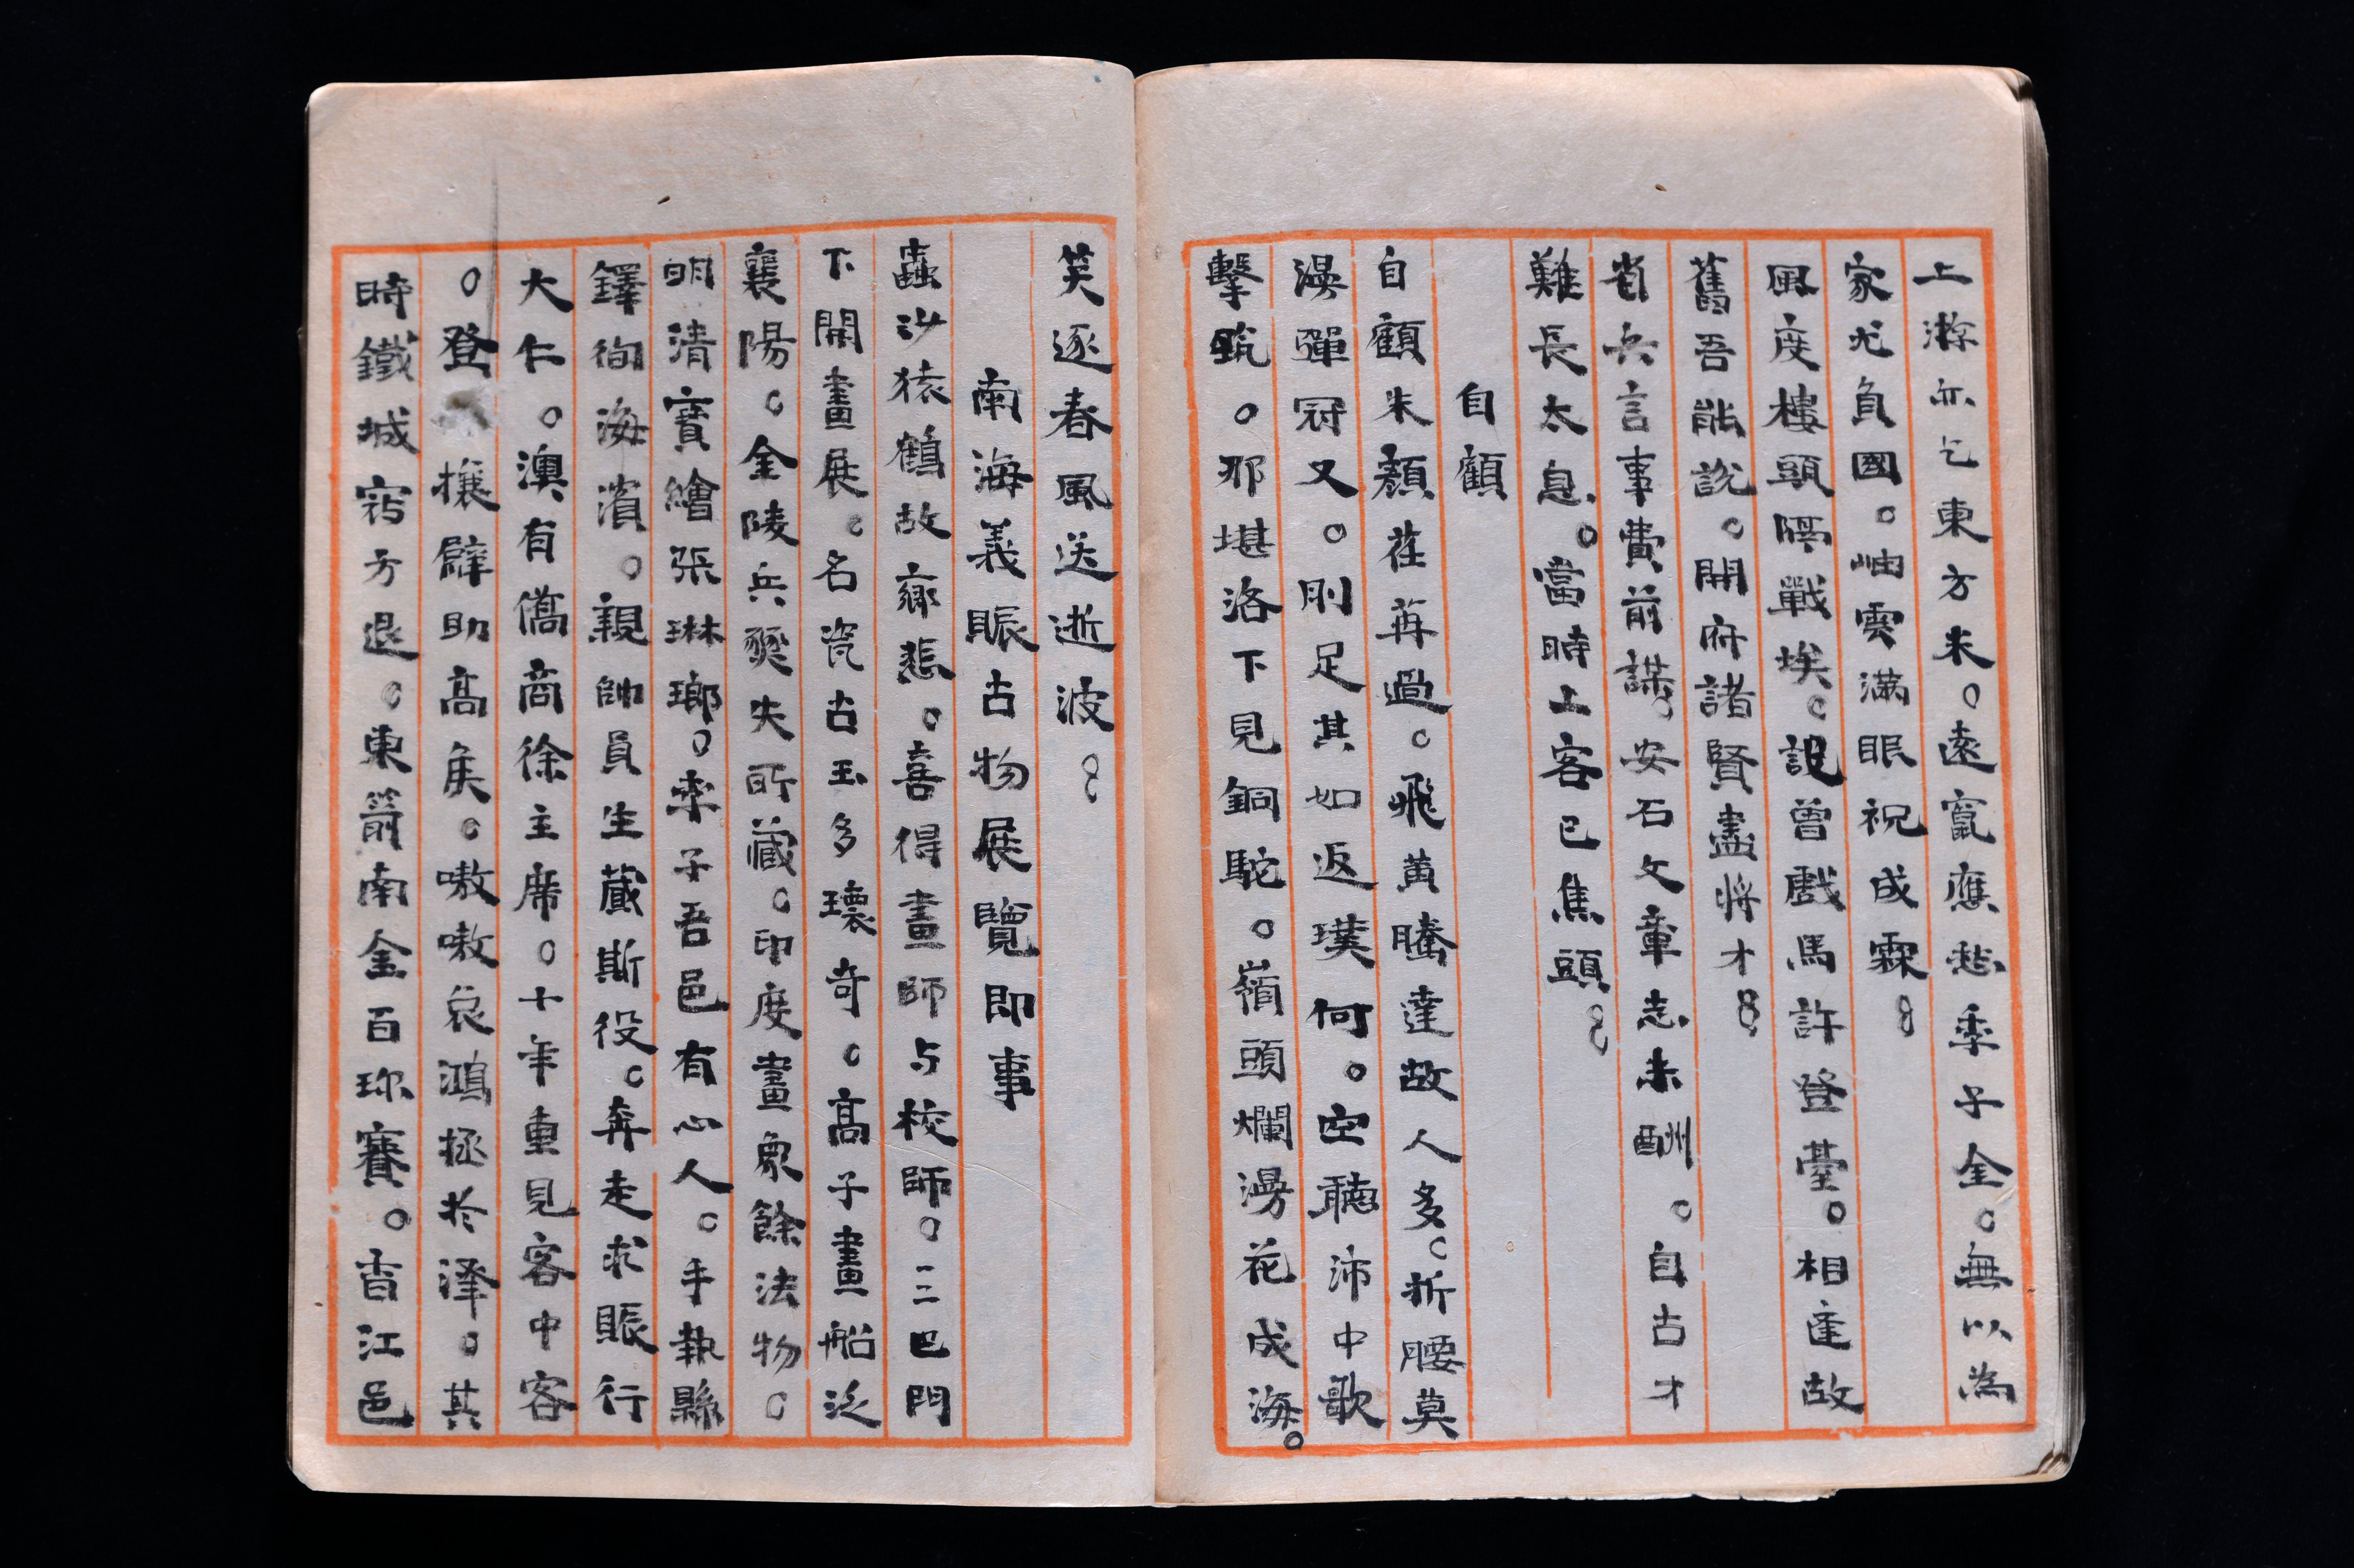 上游亦乞東方朱。遠竄應愁季子金。無以為
家尤負國。岫雲滿眼祝成霖
風度樓頭隔戰埃。說曾戲馬許登臺。相逢故
舊吾能說。開府諸賢盡將才
省兵言事費前謀。安石文章志未酬。自古才
難長太息。當時上客已焦頭
自顧
自顧朱顏荏苒過。飛黃騰達故人多。折腰莫
漫彈冠又。刖足其如返璞何。空聽沛中歌
擊筑。那堪洛下見銅駝。嶺頭爛漫花成海。
笑逐春風送逝波
南海義賑古物展覽即事
蟲沙猿鶴故鄉悲。喜得畫師与校師。三巴門
下開畫展。名瓷古玉多瓌奇。高子畫船泛
襄陽。金陵兵燹失所藏。印度畫象餘法物。
明清寶繪張琳瑯。李子吾邑有心人。手執縣
鐸徇海濱。親帥員生藏斯役。奔走求賑行
大仁。澳有僑商徐主席。十年重見客中客
。登 攘臂助高矦。嗷嗷哀鴻拯於澤。其
時鐵城寇方退。東箭南金百珎賽。香江邑